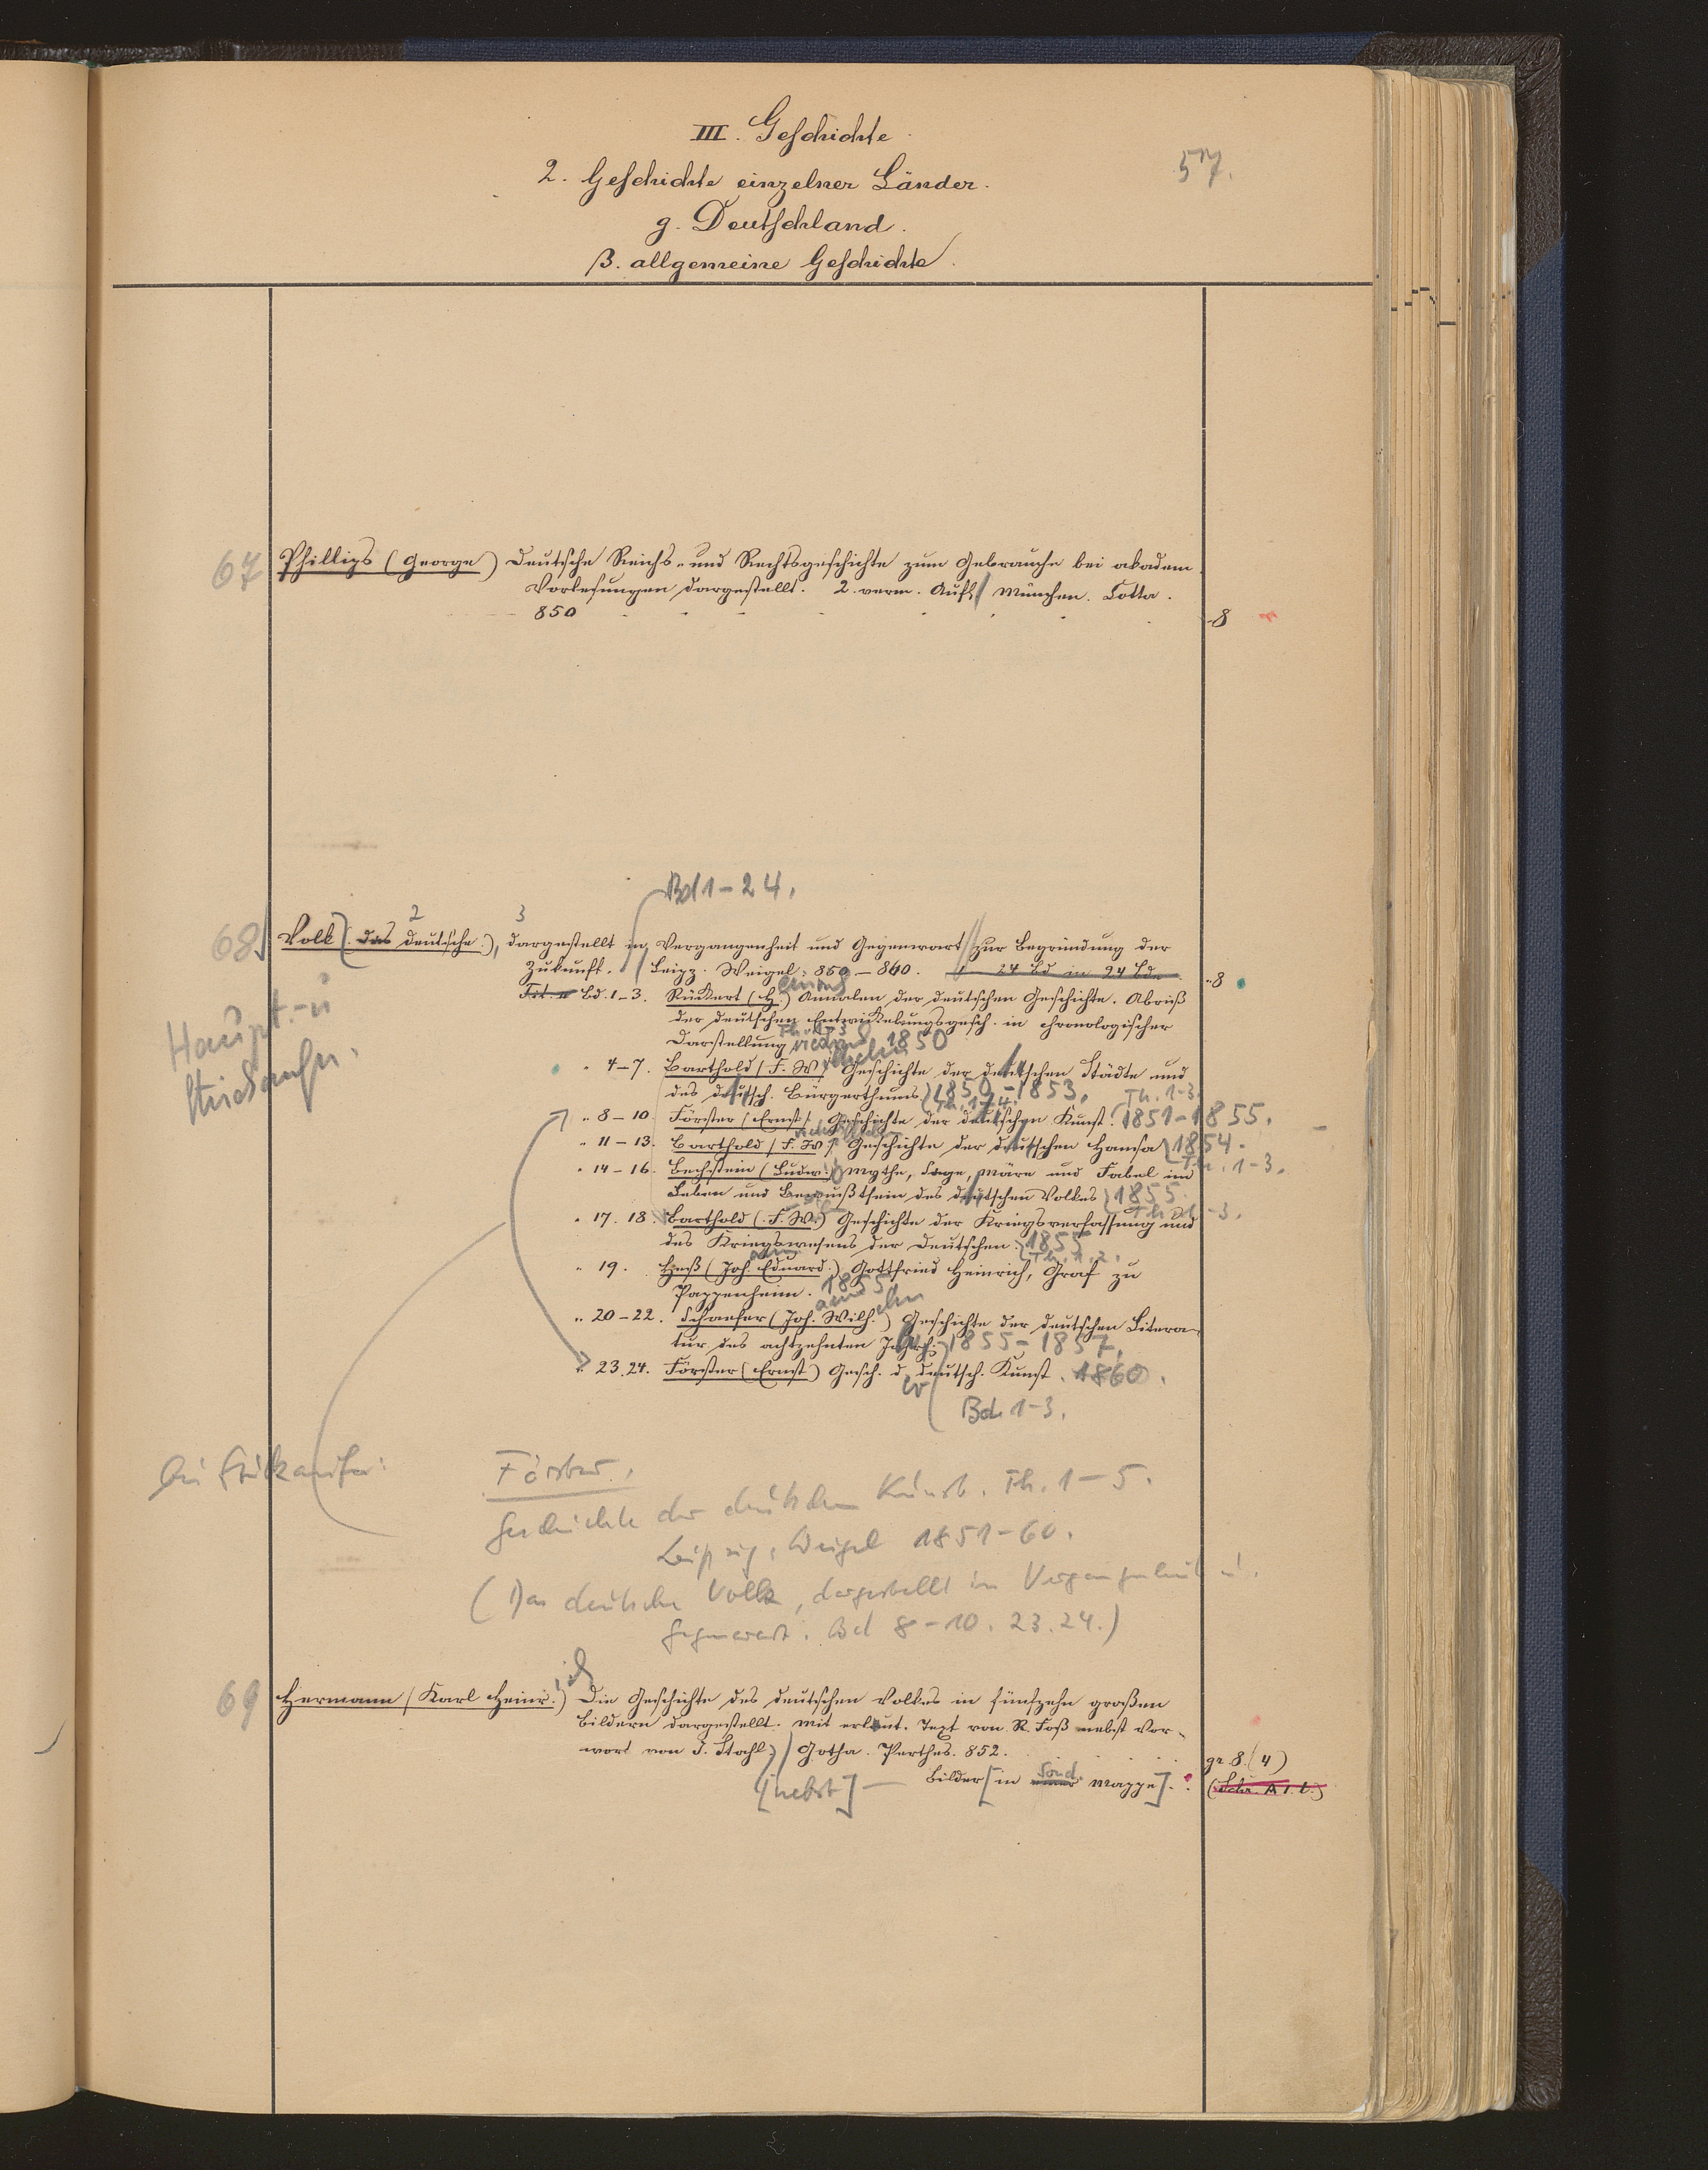 III. Geschichte
57.
2. Geschichte einzelner Länder.
g. Deutschland.
β. allgemeine Geschichte.
67 Phillips (George) Deutsche Reichs- und Rechtsgeschichte zum Gebrauche bei akadem.
Vorlesungen dargestellt. 2. verm. Aufl. München. Cotta.
850 8
Bd 1-24.
2 3
68 Volk (das deutsche), dargestellt in Vergangenheit und Gegenwart zur Begründung der
Zukunft. Leipz. Weigel. 850-860. 24 Bd in 24 Bd. 8
Bd. 1-3. Rückert (H.) Annalen der deutschen Geschichte. Abriß
der deutschen Entwickelungsgesch. in chronologischer
Haupt- u
Darstellung Th. 1-3 1850
4-7. Barthold (F. W.) Geschichte der deutschen Städte und
des deutsch. Bürgerthums 1850-1853. Th. 1-4.
Th. 1-3
8-10 Förster (Ernst) Geschichte der deutschen Kunst. 1851-1855.
11-13. Barthold (F. W.) Geschichte der deutschen Hansa 1854.
Th. 1-3.
14-16. Bechstein (Ludw.) Mythe, Sage, Märe und Fabel im
Leben und Bewußtsein des deutschen Volkes 1855
Th. 1-3.
17. 18. Barthold (F. W.) Geschichte der Kriegsverfassung und
des Kriegswesens der Deutschen. 1855
Th. 1. 2.
19. Heß (Joh. Eduard.) Gottfried Heinrich, Graf zu
Pappenheim. 1855
20-22. Schaefer (Joh. Wilh.) Geschichte der deutschen Litera-
tur des achtzehnten Jahrh. 1855-1857.
23. 24. Förster (Ernst) Gesch. d. deutsch. Kunst. 1860.
Bd. 1-3.
Förster,
Geschichte der deutschen Kunst. Th. 1-5.
Leipzig, Weigel 1851-60.
(Das deutsche Volk, dargestellt in Vergangenheit u.
Gegenwart. Bd 8-10. 23. 24.)
69 Hermann (Karl Heinr.) Die Geschichte des deutschen Volkes in fünfzehn großen
Bildern dargestellt. Mit erläut. Text von R. Foß nebst Vor-
wort von J. Stahl. Gotha. Perthes. 852. gr. 8. (4)
[nebst] — Bilder [in Mappe].